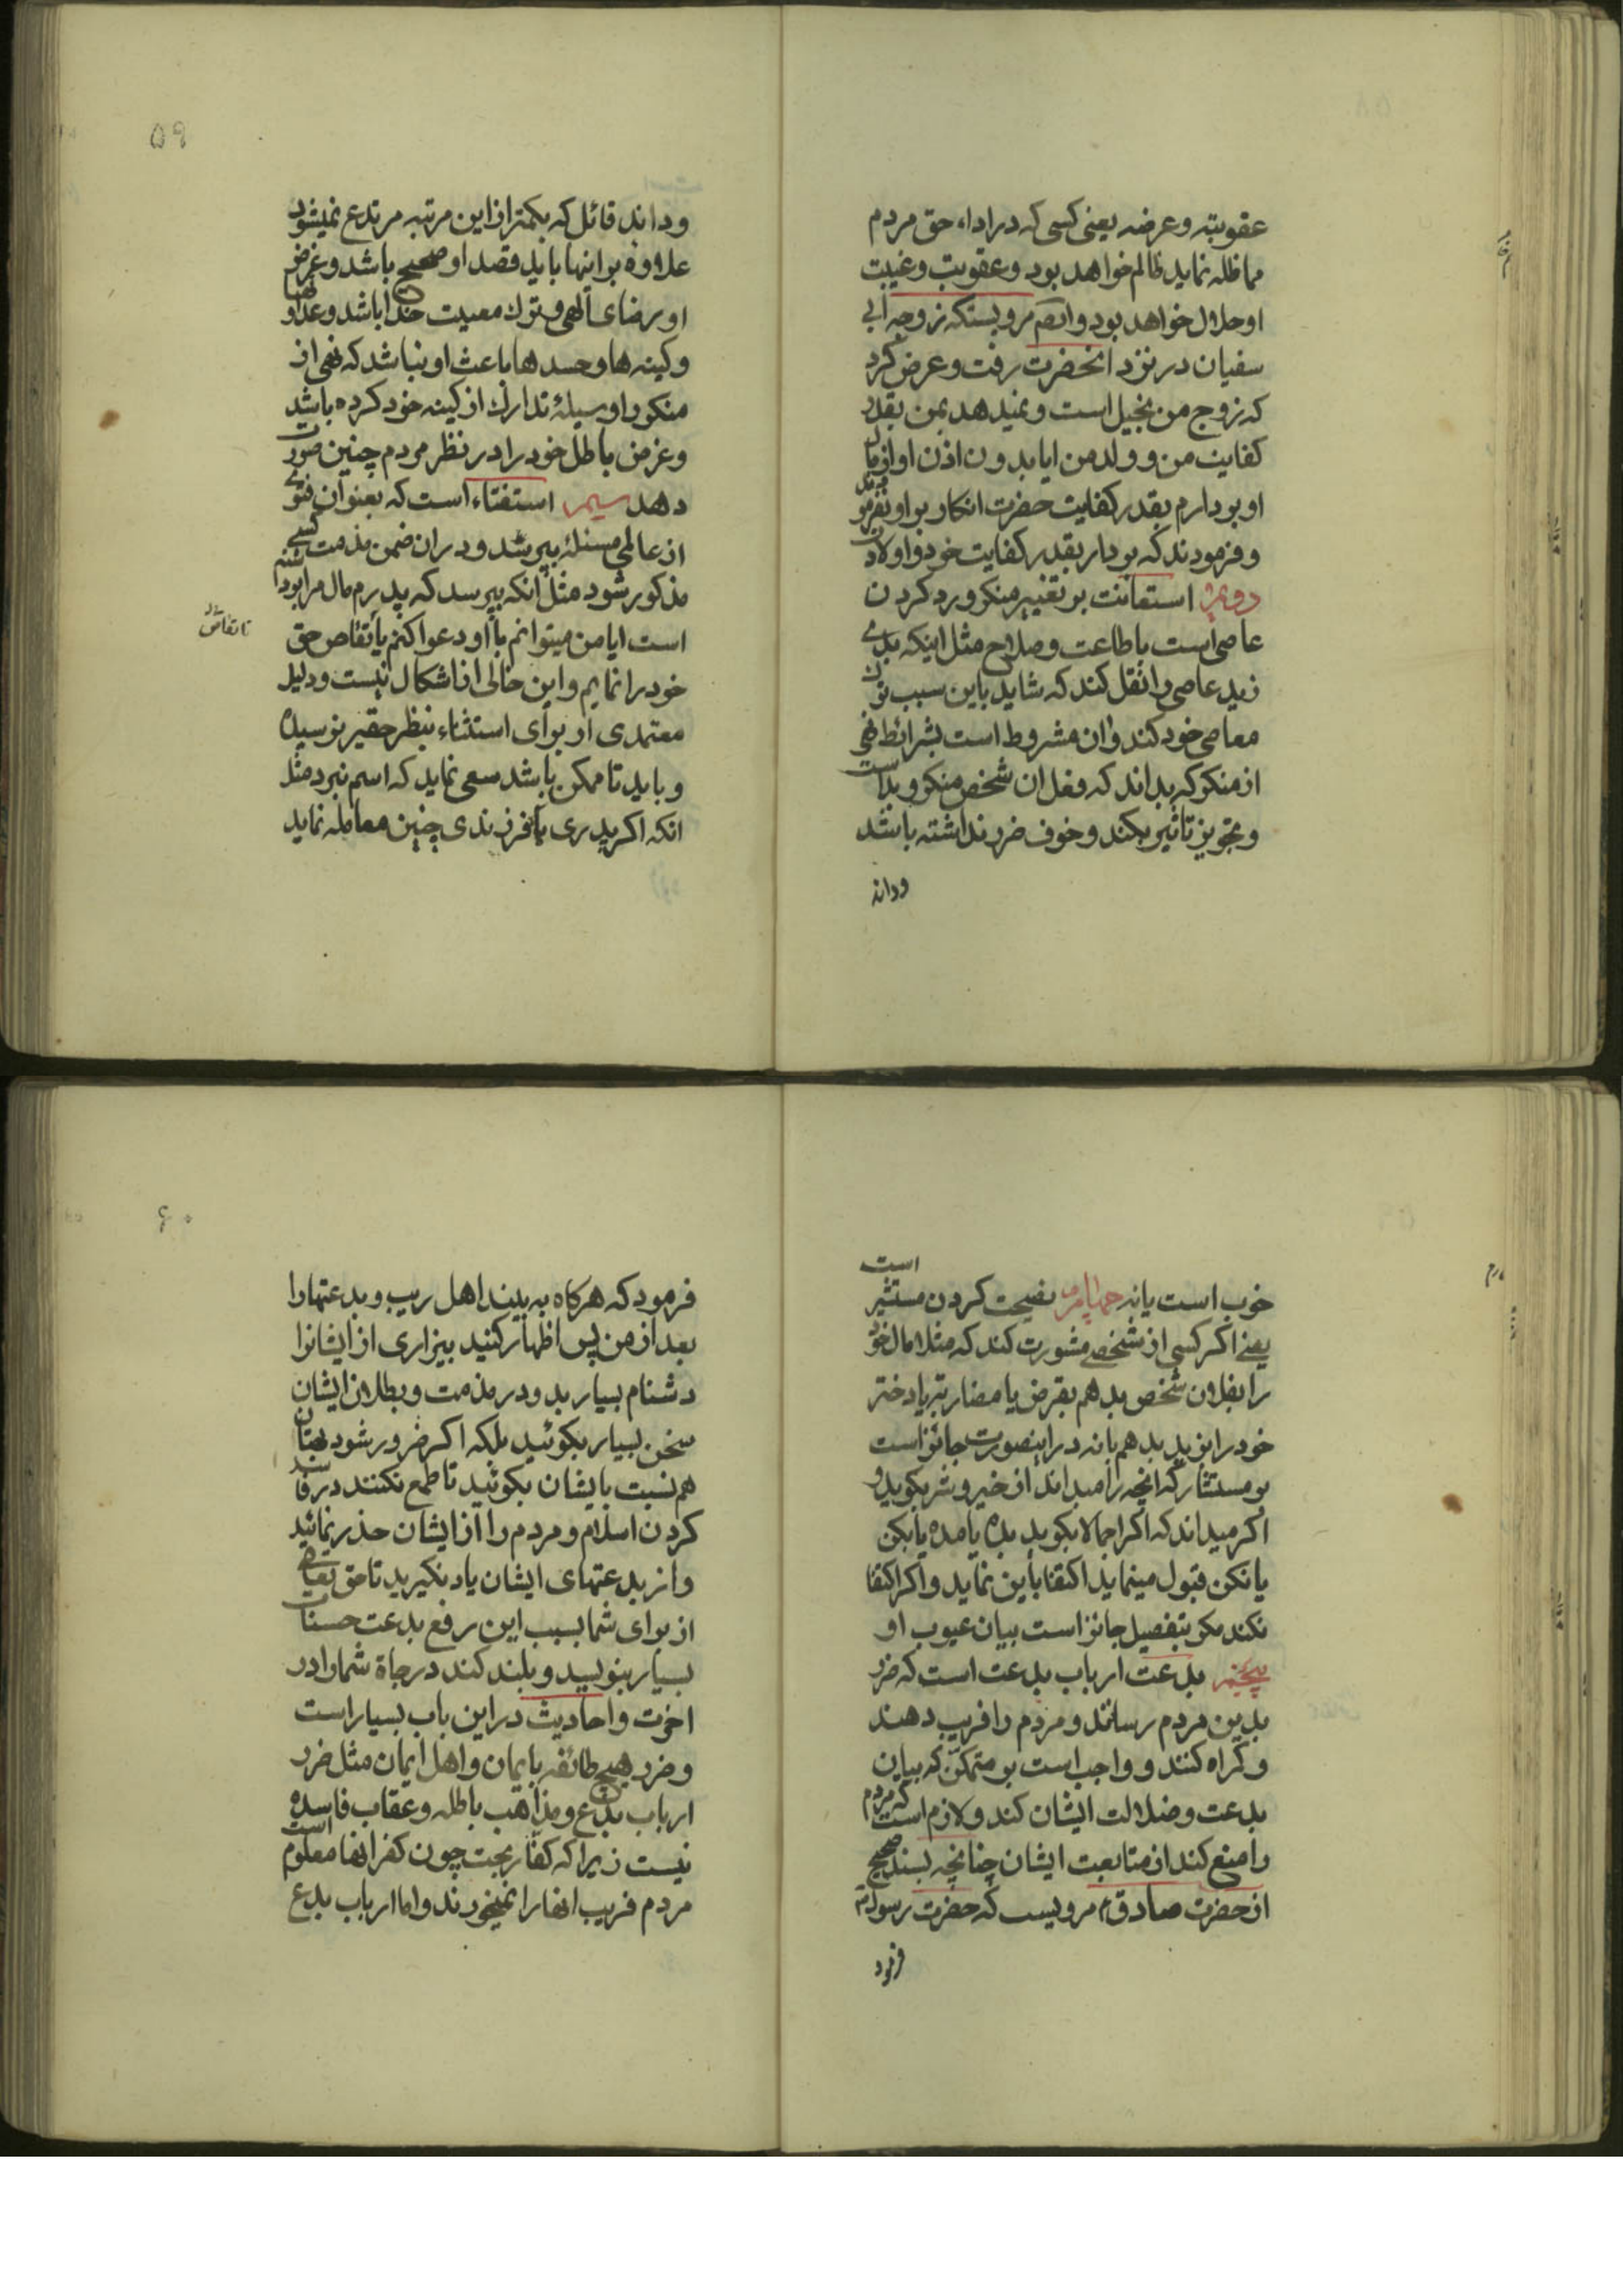 عقوبته وعرضه یعنی کسی که در اداء حق مردم
مماطله نماید ظالم خواهد بود وعقوبت وغیبت
او حلال خواهد بود وایضا مرویستکه زوجه ابی
سفیان در نزد انحضرت رفت وعرض کرد
که زوج من بخیل است ونمیدهد بمن بقدر
کفایت من و ولد من ایا بدون اذن او از مال
او بردارم بقدر کفایت حضرت انکار بر او نفرمودند
وفرمودند که بردار بقدر کفایت خود واولادت
دویم استعانت بر تغییر منکر ورد کردن
عاصی است باطاعت وصلاح مثل اینکه بدی
زید عاصی را نقل کند که شاید باین سبب ترک
معاصی خود کند وان مشروط است بشرائط نهی
از منکر که بداند که فعل ان شخص منکر وبد است
وتجویز تاثیر بکند وخوف ضرر نداشته باشد
ودانه
۵۹
وداند قائل که بکمتر از این مرتبه مرتدع نمیشود
علاوه بر اینها باید قصد او صحیح باشد وغرض
او رضای الهی وترک معصیت خدا باشد وعداوتها
وکینه ها وحسدها باعث او نباشد که نهی از
منکر را وسیلهٔ تدارک از کینه خود کرده باشد
وغرض باطل خود را در نظر مردم چنین صورت
دهد سیم استفتاء است که بعنوان فتوی
از عالمی مسئله بپرسد ودر ان ضمن مذمت کسی
مذکور شود مثل انکه بپرسد که پدرم مال مرا برداشته
است ایا من میتوانم با او دعوا کنم یا تقاص حق
تا تقاص
خود را نمایم واین خالی از اشکال نیست ودلیل
معتمدی از برای استثناء بنظر حقیر نرسیده
وباید تا ممکن باشد سعی نماید که اسم نبرد مثل
انکه اکر پدری با فرزندی چنین معامله نماید
است
خوب است یا نه چهارم نصیحت کردن مستشیر
یعنی اکر کسی از شخصی مشورت کند که مثلا مال خود
را بفلان شخص بدهم بقرض یا مضاربه یا دختر
خود را بزید بدهم یا نه در اینصورت جائز است
بر مستشار که انچه را میداند از خیر وشر بکوید و
اکر میداند که اکر اجمالا بکوید بده یا مده یا بکن
یا نکن قبول مینماید اکتفا باین نماید واکر اکتفا
نکند مکر بتفصیل جائز است بیان عیوب او
پنجم بدعت ارباب بدعت است که ضرر
بدین مردم رسانند ومردم را فریب دهند
وکمراه کنند و واجب است بر متمکن که بیان
بدعت وضلالت ایشان کند ولازم است که مردم
را منع کند از متابعت ایشان چنانچه بسند صحیح
از حضرت صادق مرویست که حضرت رسول
فرمود
۶۰
فرمود که هرکاه به بیند اهل ریب وبدعتها را
بعد از من پس اظهار کنید بیزاری از ایشانرا
دشنام بسیار بد ودر مذمت وبطلان ایشان
سخن بسیار بکوئید بلکه اکر ضرور شود بهتان
هم نسبت بایشان بکوئید تا طمع نکنند در فاسد
کردن اسلام ومردم را از ایشان حذر نمائید
واز بدعتهای ایشان یاد نکیرید تا حق تعالی
از برای شما بسبب این رفع بدعت حسنات
بسیار بنویسد وبلند کند درجاة شما را در
اخرت واحادیث در این باب بسیار است
وضرر هیچ طائفه بایمان واهل ایمان مثل ضرر
ارباب بدع ومذاهب باطله وعقاب فاسده
نیست زیرا که کفار بجت چون کفر انها معلوم است
مردم فریب انها را نمیخورند واما ارباب بدع